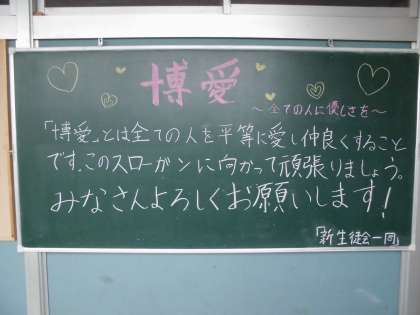 博愛
～全ての人に優しさを～
「博愛」とは全ての人を平等に愛し仲良くすること
です。このスローガンに向かって頑張りましょう。
みなさんよろしくお願いします！
「新生徒会一同」